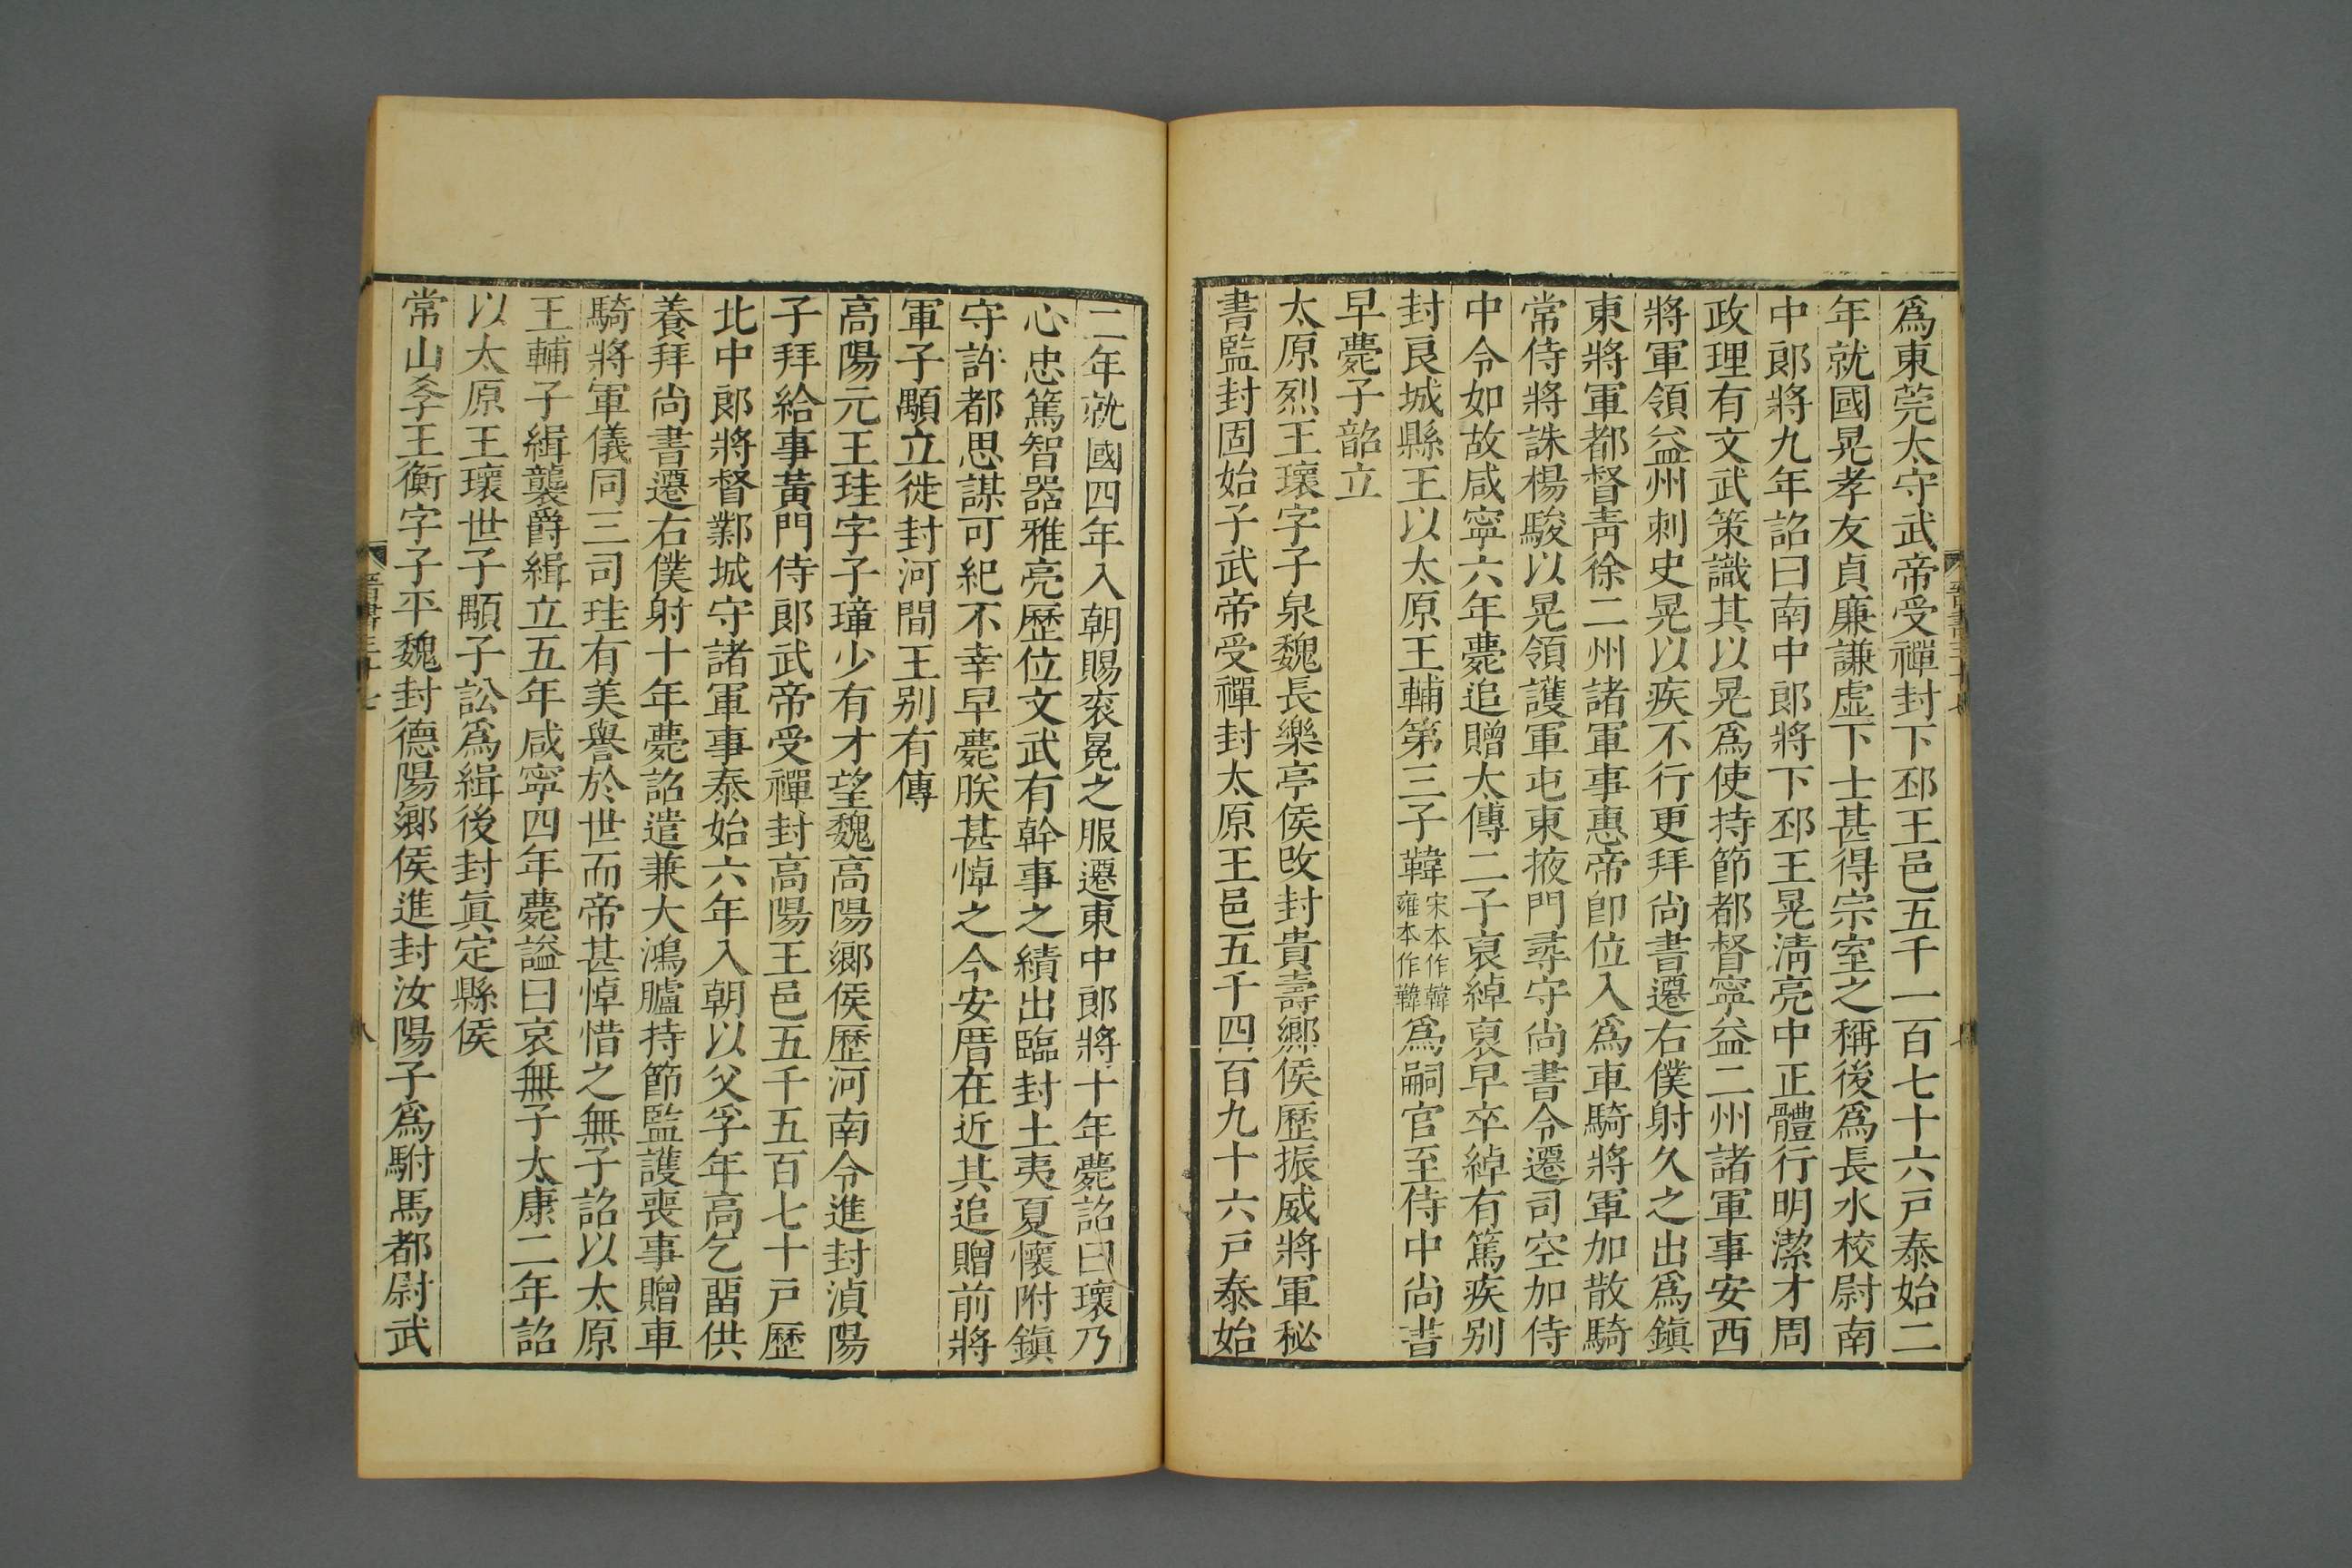 爲東莞太守武帝受禪封下邳王邑五千一百七十六戸泰始二
年就國晃孝友貞廉謙虚下士甚得宗室之稱後爲長水校尉南
中郎將九年詔曰南中郎將下邳王晃淸亮中正體行明潔才周
政理有文武策識其以晃爲使持節都督寧益二州諸軍事安西
將軍領益州刺史晃以疾不行更拜尚書遷右僕射久之出爲鎭
東將軍都督靑徐二州諸軍事惠帝卽位入爲車騎將軍加散騎
常侍將誅楊駿以晃領護軍屯東掖門尋守尚書令遷司空加侍
中令如故咸寧六年薨追贈太傅二子裒綽裒早卒綽有篤疾別
封良城縣王以太原王輔第三子韡宋本作韓雍本作韡爲嗣官至侍中尚書
早薨子韶立
太原烈王瓌字子泉魏長樂亭侯改封貴壽鄉侯歷振威將軍秘
書監封固始子武帝受禪封太原王邑五千四百九十六戸泰始
二年就國四年入朝賜衮冕之服遷東中郎將十年薨詔曰瓌乃
心忠篤智器雅亮歷位文武有幹事之績出臨封土夷夏懷附鎭
守許都思謀可紀不幸早薨朕甚悼之今安厝在近其追贈前將
軍子顒立徙封河間王別有傳
高陽元王珪字子璋少有才望魏高陽鄉侯歷河南令進封湞陽
子拜給事黃門侍郎武帝受禪封高陽王邑五千五百七十戸歷
北中郎將督鄴城守諸軍事泰始六年入朝以父孚年高乞畱供
養拜尚書遷右僕射十年薨詔遣兼大鴻臚持節監護喪事贈車
騎將軍儀同三司珪有美譽於世而帝甚悼惜之無子詔以太原
王輔子緝襲爵緝立五年咸寧四年薨諡曰哀無子太康二年詔
以太原王瓌世子顒子訟爲緝後封眞定縣侯
常山孝王衡字子平魏封德陽鄉侯進封汝陽子爲駙馬都尉武
晉書三十七
八